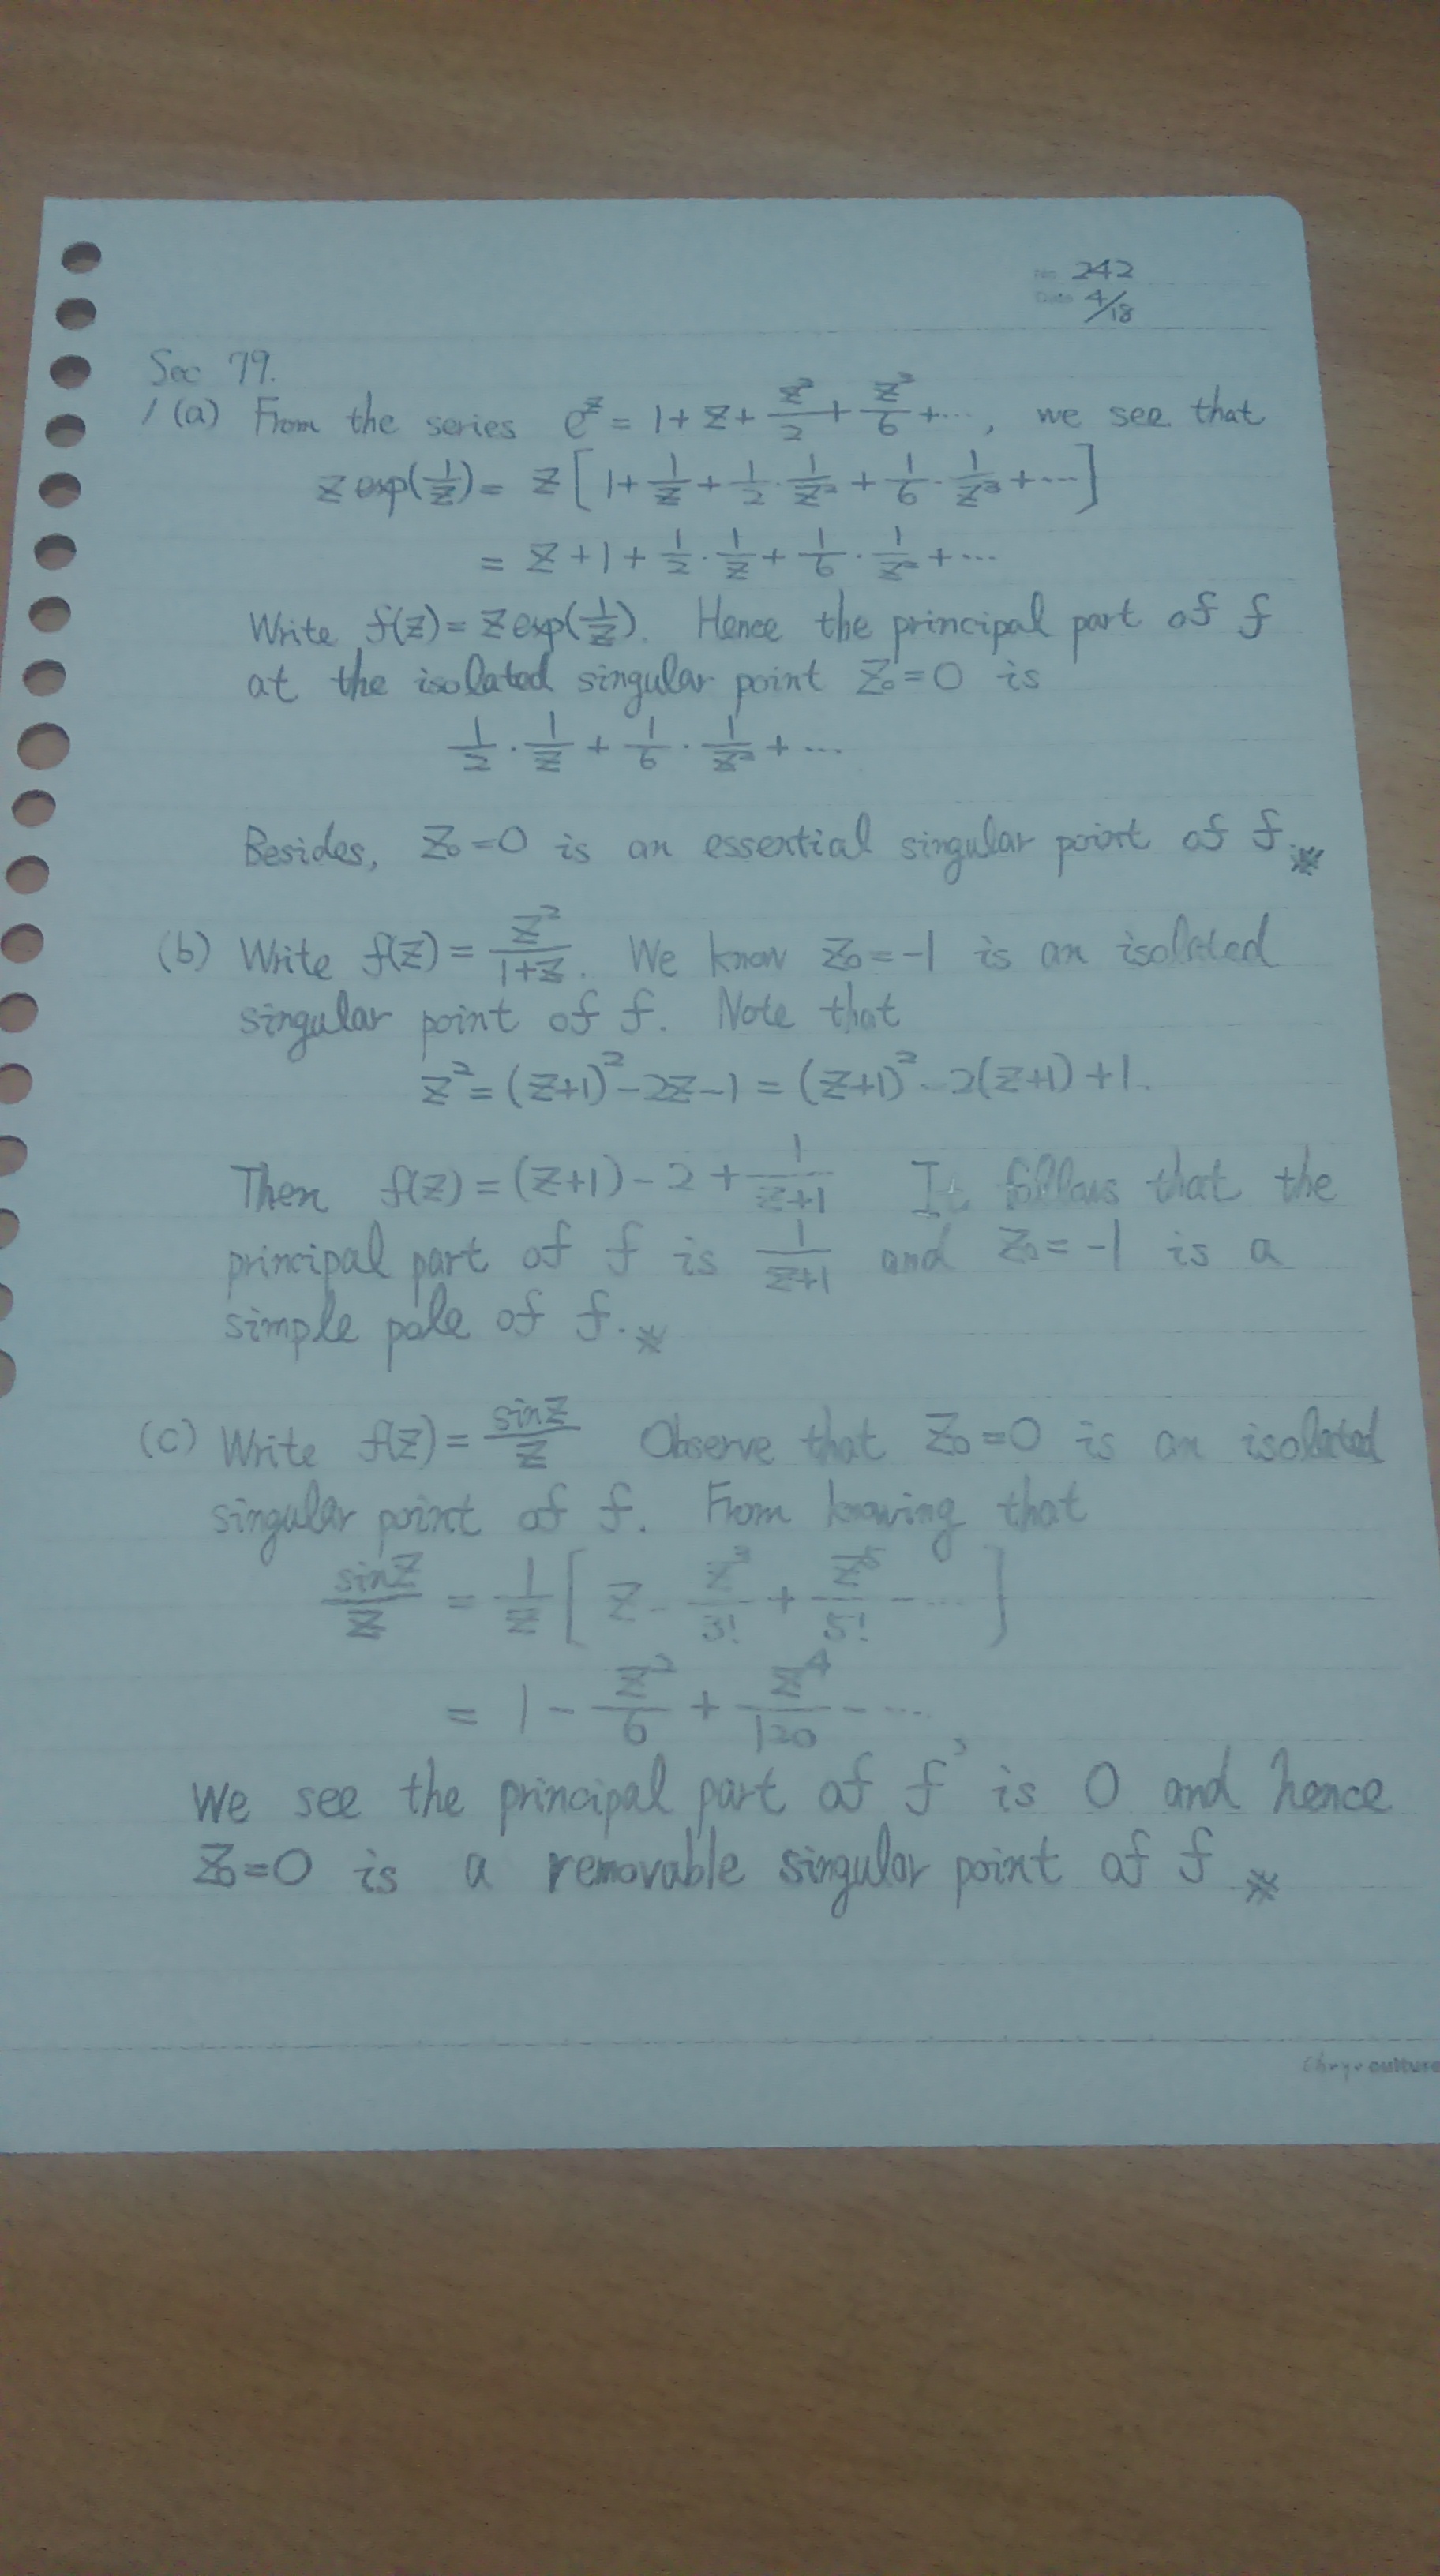 No. 242
Date 4/18
Sec 79.
1 (a) From the series e^z = 1 + z + z²/2 + z³/6 + ⋯, we see that
z exp(1/z) = z [ 1 + 1/z + 1/2 · 1/z² + 1/6 · 1/z³ + ⋯ ]
= z + 1 + 1/2 · 1/z + 1/6 · 1/z² + ⋯
Write f(z) = z exp(1/z). Hence the principal part of f
at the isolated singular point z₀ = 0 is
1/2 · 1/z + 1/6 · 1/z² + ⋯
Besides, z₀ = 0 is an essential singular point of f.※
(b) Write f(z) = z²/(1+z). We know z₀ = -1 is an isolated
singular point of f. Note that
z² = (z+1)² - 2z - 1 = (z+1)² - 2(z+1) + 1.
Then f(z) = (z+1) - 2 + 1/(z+1) It follows that the
principal part of f is 1/(z+1) and z₀ = -1 is a
simple pole of f.※
(c) Write f(z) = sinz/z Observe that z₀ = 0 is an isolated
singular point of f. From knowing that
sinz/z = 1/z [ z - z³/3! + z⁵/5! - ⋯ ]
= 1 - z²/6 + z⁴/120 - ⋯,
We see the principal part of f is 0 and hence
z₀ = 0 is a removable singular point of f ※